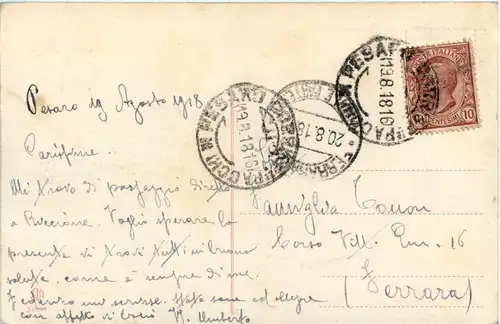 Pesaro 19 Agosto 1918
Carissime
Mi trovo di passaggio diretto
a Riccione. Voglio sperare la
presente vi trovi tutti in buona
salute, come è sempre di me.
mi scrisse. State sane ed allegre
con affetto di baci Umberto
Famiglia
Corso Vitt. Em. 16
(Ferrara)
PESARO
19.8.18.16
PESARO
19.8.18.16
20.8.18
POSTE ITALIANE
CENTESIMI 10